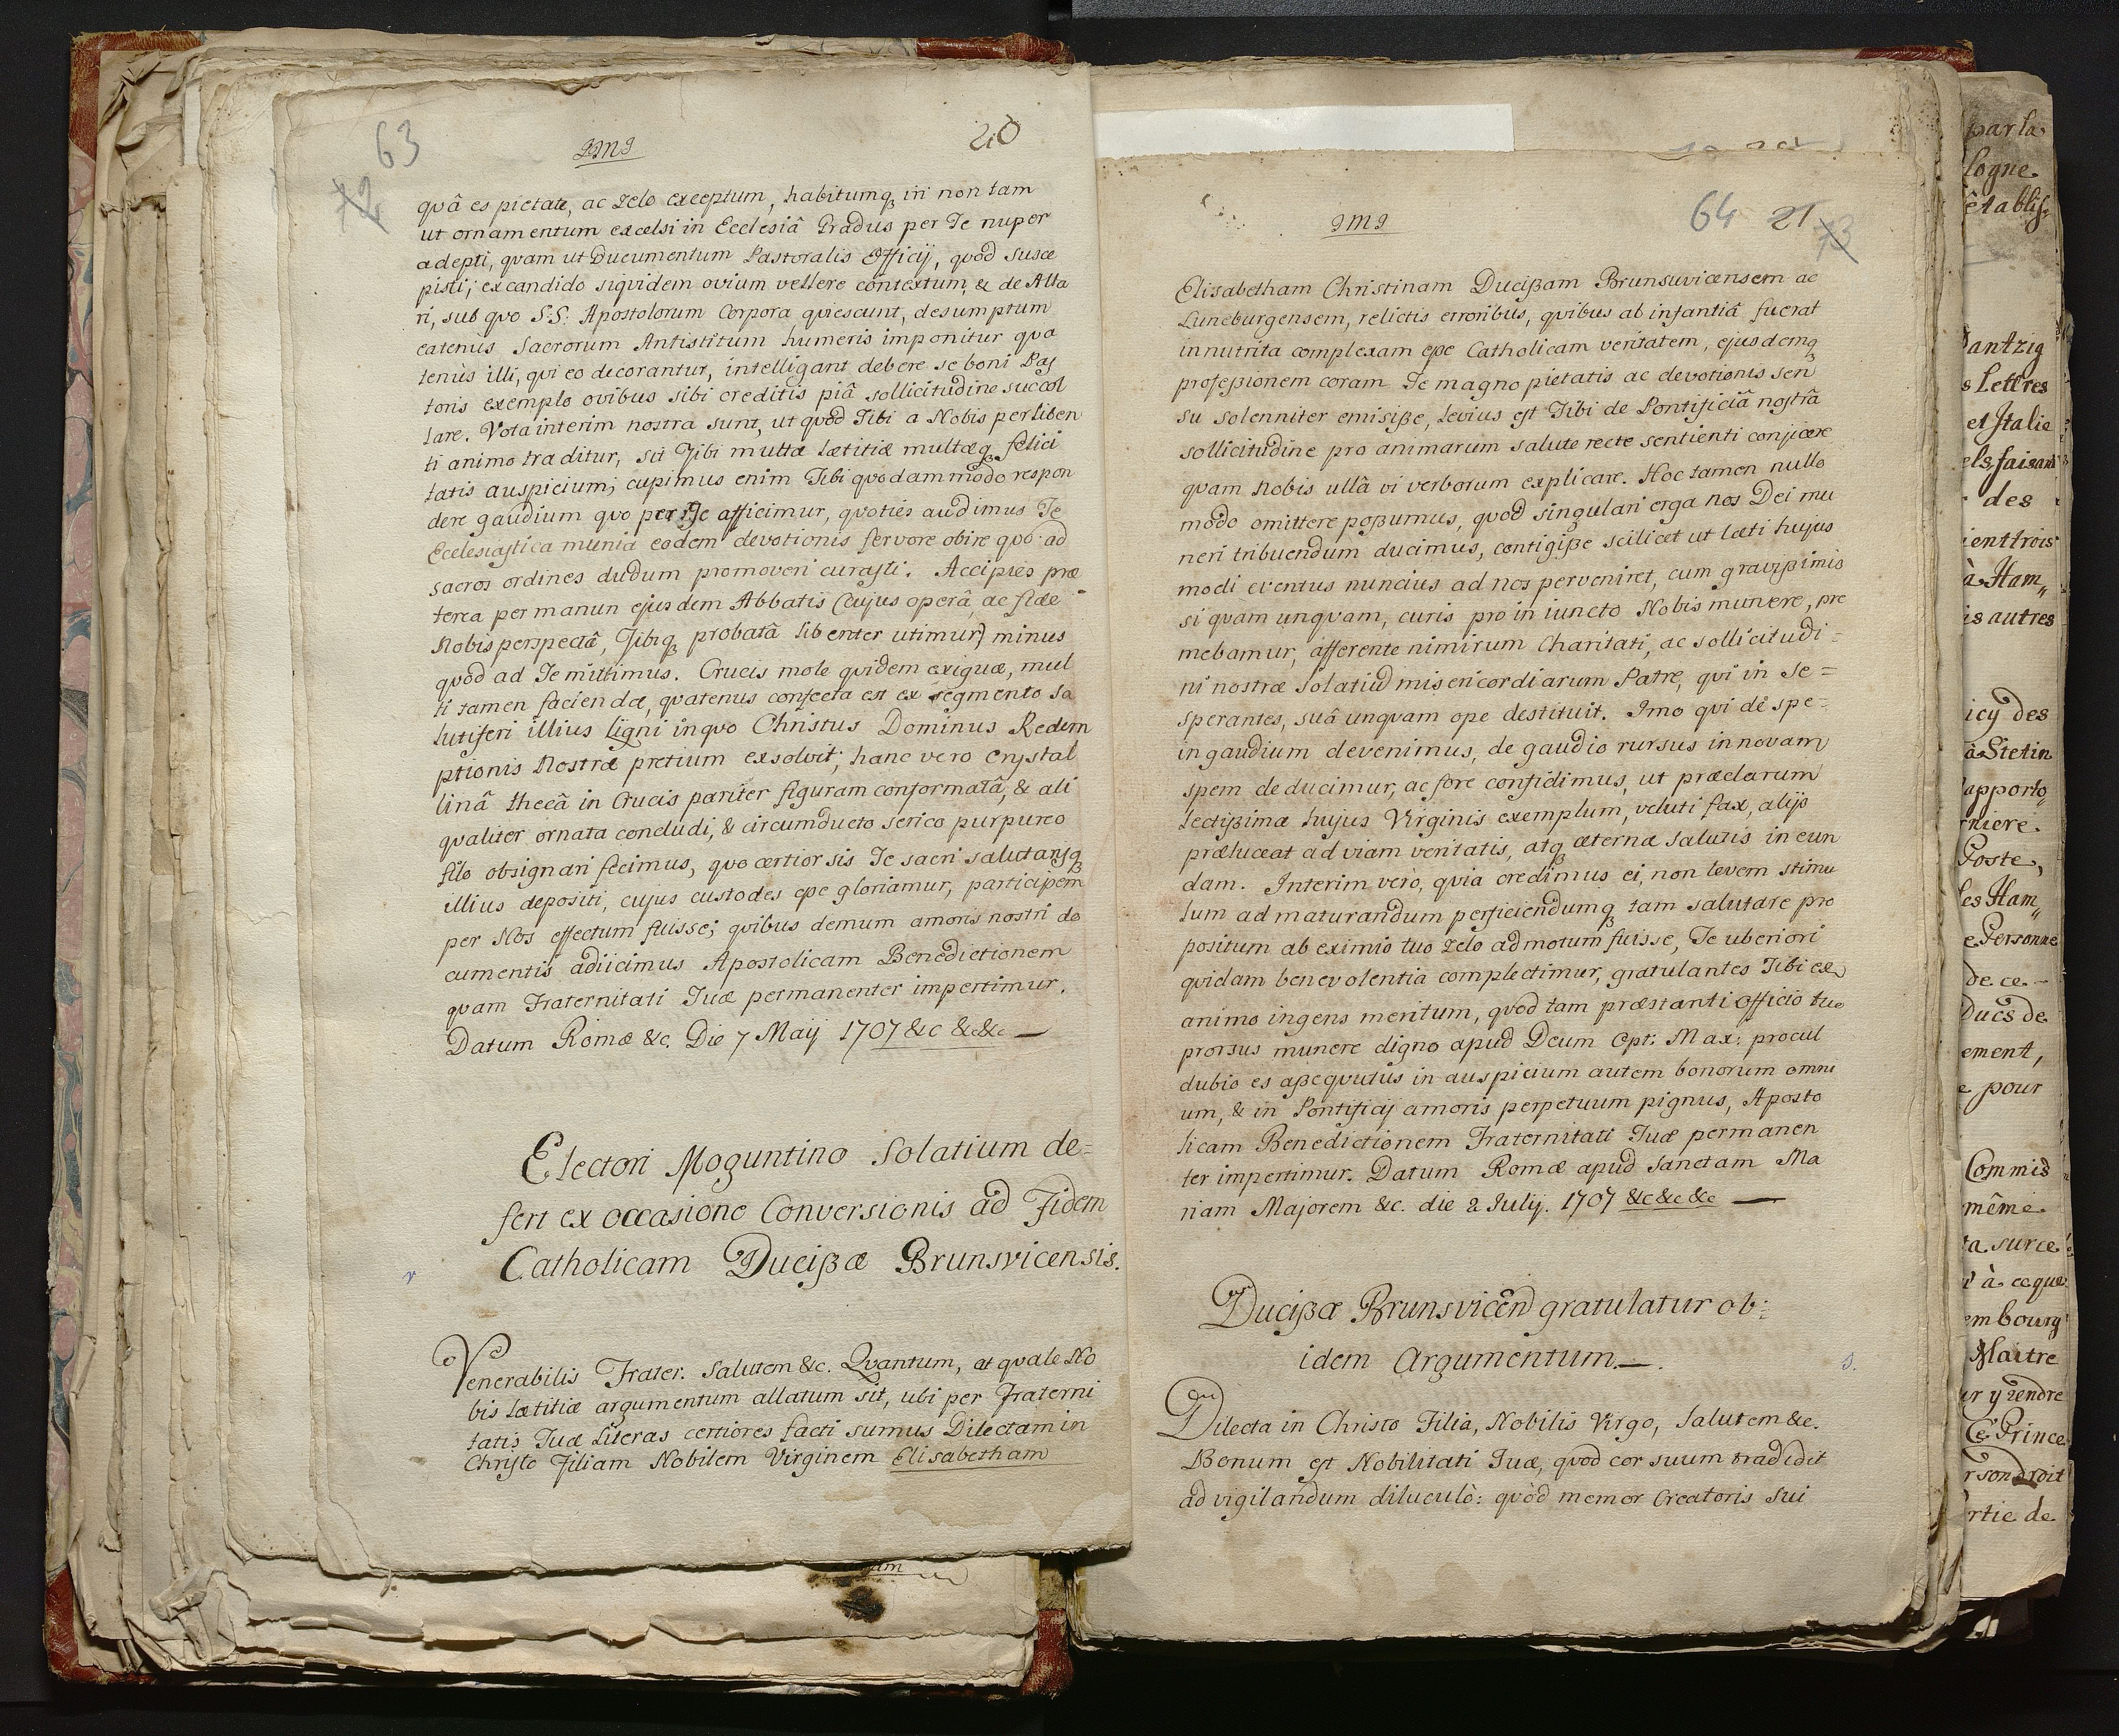 63
72
JMJ
20
qvâ es pietate, ac zelo exceptum, habitumq iri non tam
ut ornamentum excelsi in Ecclesiâ Gradus per Te nuper
adepti, qvam ut Ducumentum Pastoralis Officij, qvod susce
pisti; ex candido siqvidem ovium vellere contextum, & de Alta
ri, sub qvo S.S. Apostolorum Corpora qviescunt, desumptum
eatenus Sacrorum Antistitum humeris imponitur qva
tenùs illi, qvi eo decorantur, intelligant debere se boni Pas
toris exemplo ovibus sibi creditis piâ sollicitudine succol
lare. Vota interim nostra sunt, ut qvod Tibi a Nobis perliben
ti animo traditur, sit Tibi multæ Lætitiæ multæq felici
tatis auspicium; cupimus enim Tibi qvodammodo respon
dere gaudium qvo per Te afficimur, qvoties audimus Te
Ecclesiastica munia eodem devotionis fervore obire qvo ad
sacros ordines dudum promoveri curasti. Accipies præ
terea per manun ejusdem Abbatis (Cujus operâ, ac fide
Nobis perspectâ, Tibiq probatâ libenter utimur) minus
qvod ad Te mittimus. Crucis mole qvidem exiguæ, mul
ti tamen faciendæ, qvatenus confecta est ex segmento sa
lutiferi illius Ligni in qvo Christus Dominus Redem
ptionis Nostræ pretium exsolvit; hanc vero Crystal
linâ thecâ in Crucis pariter figuram conformatâ, & ali
qvaliter ornata concludi, & circumducto serico purpureo
filo obsignari fecimus, qvo certior sis Te sacri salutarisq
illius depositi, cujus custodes eße gloriamur, participem
per Nos effectum fuisse; qvibus demum amoris nostri do
cumentis adiicimus Apostolicam Benedictionem
qvam Fraternitati Tuæ permanenter impertimur.
Datum Romæ &c. Die 7 Maij 1707 &c &c&c —
Electori Moguntino Solatium de=
fert ex occasione Conversionis ad Fidem
Catholicam Ducißæ Brunsvicensis.
Venerabilis Frater. Salutem &c. Qvantum, et qvale No
bis Lætitiæ argumentum allatum sit, ubi per Fraterni
tatis Tuæ Literas certiores facti sumus Dilectam in
Christo Filiam Nobilem Virginem Elisabetham
JMJ
64
21
73
Elisabetham Christinam Ducißam Brunsuvicensem ac
Luneburgensem, relictis erroribus, qvibus ab infantiâ fuerat
innutrita complexam eße Catholicam veritatem, ejusdemq
profeßionem coram Te magno pietatis ac devotionis sen
su solenniter emisiße, Levius est Tibi de Pontificiâ nostrâ
sollicitudine pro animarum salute recte sentienti conjicere
qvam Nobis ullâ vi verborum explicare. Hoc tamen nullo
modo omittere poßumus, qvod singulari erga nos Dei mu
neri tribuendum ducimus, contigiße scilicet ut læti hujus
modi eventus nuncius ad nos perveniret, cum gravißimis
si qvam unqvam, curis pro in iuncto Nobis munere, pre
mebamur, afferente nimirum Charitati, ac sollicitudi=
ni nostræ solatiũ misericordiarum Patre, qvi in Se=
sperantes, suâ unqvam ope destituit. Imo qvi de spe=
in gaudium devenimus, de gaudio rursus in novam
spem deducimur, ac fore confidimus, ut præclarum
lectißimæ hujus Virginis exemplum, veluti fax, alijs
præluceat ad viam veritatis, atq æternæ salutis in eun
dam. Interim verò, qvia credimus ei, non levem stimu
lum ad maturandum perficiendumq tam salutare pro
positum ab eximio tuo zelo admotum fuisse, Te uberiori
qvidam benevolentia complectimur, gratulantes Tibi ex
animo ingens meritum, qvod tam præstanti officio tuo
prorsus munere digno apud Deum Opt: Max: procul
dubio es aßeqvutus in auspicium autem bonorum omni
um, & in Pontificij amoris perpetuum pignus, Aposto
licam Benedictionem Fraternitati Tuæ permanen
ter impertimur. Datum Romæ apud Sanctam Ma
riam Majorem &c. die 2 Julij. 1707 &c &c &c —
Ducißæ Brunsvicẽn gratulatur ob:
idem Argumentum. —.
Dilecta in Christo Filia, Nobilis Virgo, Salutem &c.
Bonum est Nobilitati Tuæ, qvod cor suum tradidit
ad vigilandum diluculò: qvòd memor Creatoris sui
par la
logne
établis
Dantzig
s Lettres
et Italie
els, faisant
des
ient trois
à Ham„
is autres
icy des
à Stetin
apporto
rniere.
Poste,
les Ham„
e Personne
de ce -
Ducs de
ement,
e pour
Commis
même
ta sur ce
à ce que
embourg
Maitre
er y rendre
Ce Prince
r son droit
rtie de